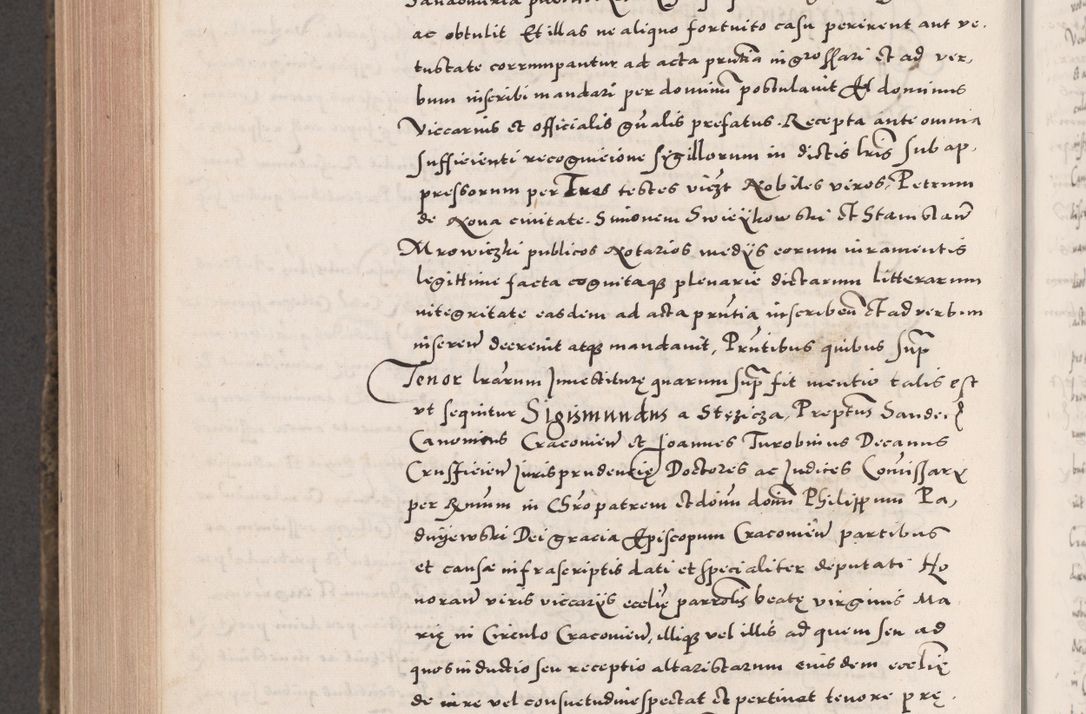 ac obtulit Et illas ne aliquo fortuito casu perirent aut ve-
tustate corrumpantur ad acta pñtia ingrossari Et ad ver,
bum inscribi mandari per dominũ postulavit Et dominus
Viccarius et officialis gñalis prefatus. Recepta ante omnia
sufficienti recognicione Sigillorum in dictis lr̃is sub ap,
pressorum per Tres testes viczt Nobiles viros, Petrum
de Nova civitate. Simonem Swieykowski Et Stanislaũ
Mrowiczki publicos Notarios medijs eorum iuramentis
legittime facta cognitaqz plenarie dictarum litterarum
integritate easdem ad acta pñtia inscribeñ Et ad verbum
insereñ decrevit atqz mandavit, Pñtibus quibus sup̃
Tenor lr̃arum Investiturę quarum sup̃ fit mentio talis est
ut sequitur Sigismundus a Stęzicza, Prepttus Sandei
Canonicus Cracovieñ et Joannes Turobinus Decanus
Crusficieñ Jurisprudencię Doctores ac Judices Com̃issarÿ
per Rm̃um in Chr̃o patrem et dom̃ dom̃ Philippum Pa,
dniewski Dei gracia Episcopum Cracovieñ partibus
et causæ infrascriptis dati et specialiter deputati Ho
norañ viris viccarijs ecclię parrolis beatę virginis Ma
rię in Circulo Cracovieñ, illiqz vel illis ad quem seu ad
quos inductio seu receptio altaristarum eiusdem ecclię
de iure vel consuetudine spectat et pertinet tenore prę.